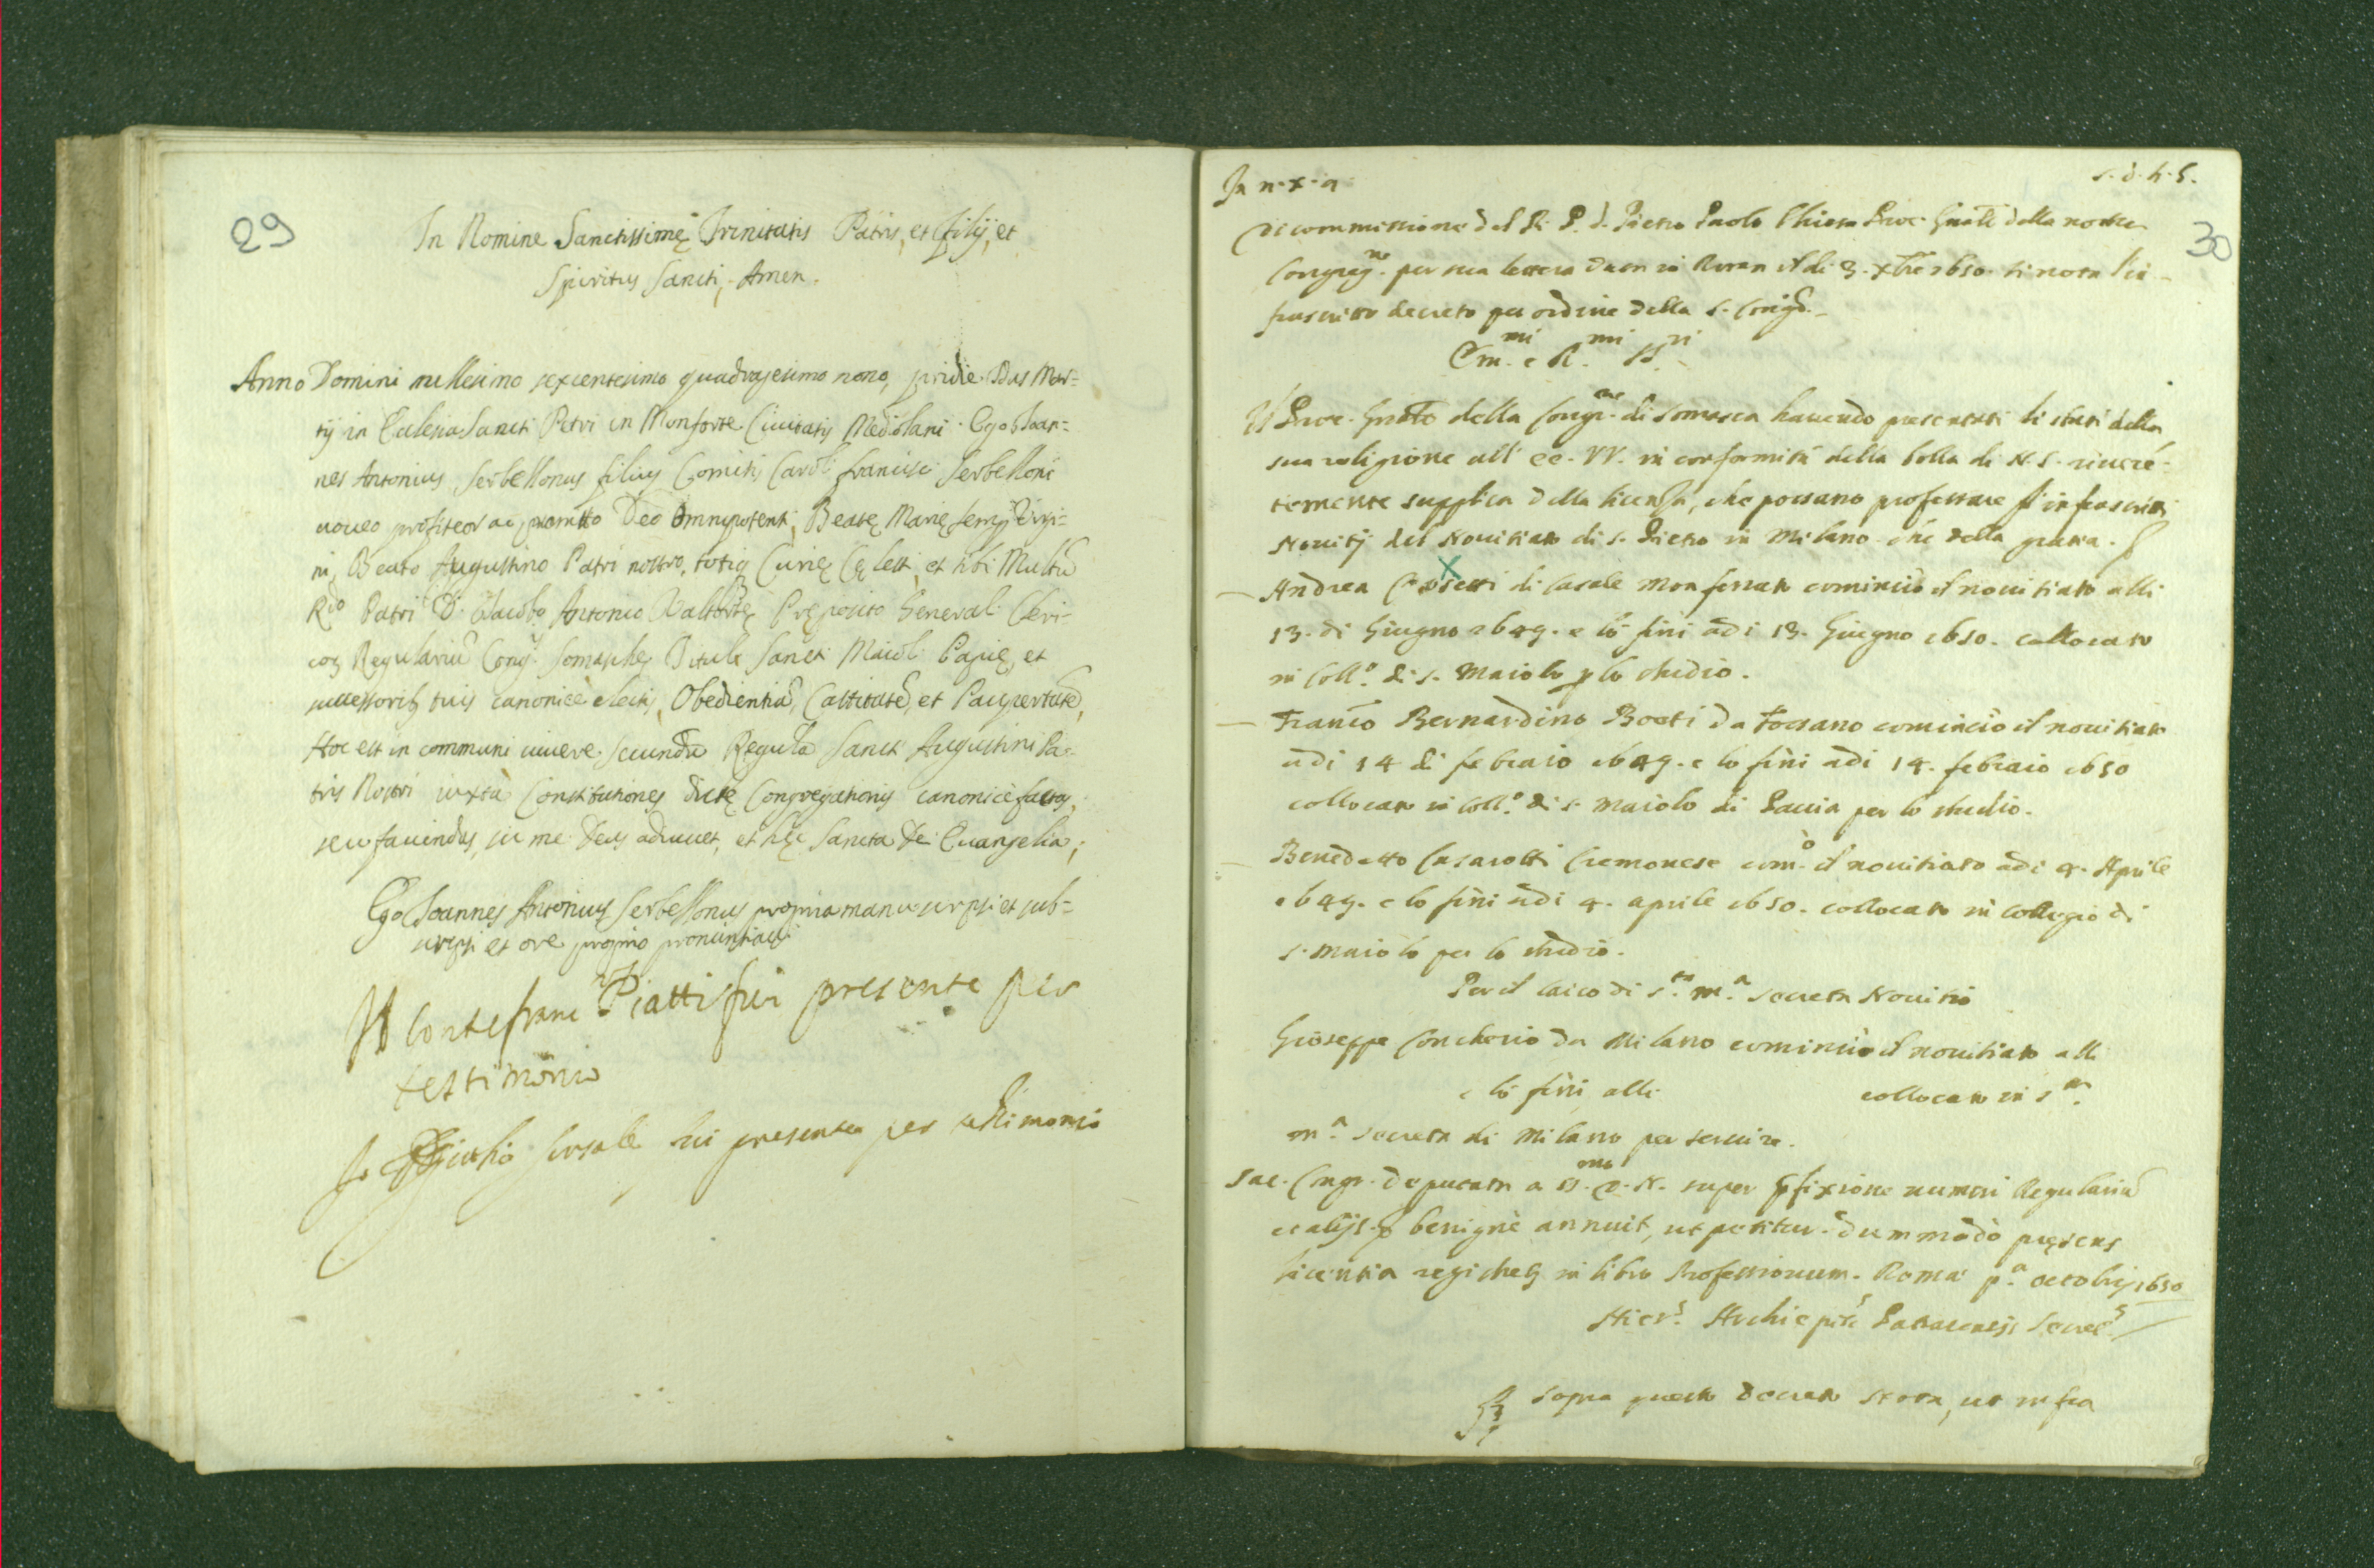 29
In Nomine Sanctissimę Trinitatis Patris, et Filij, et
Spiritus Sancti, Amen.
Anno Domini millesimo sexcentesimo quadragesimo nono, pridie Idus Mar=
tij in Ecclesia Sancti Petri in Monforte Civitatis Mediolani. Ego Ioan=
nes Antonius Serbellonus filius Comitis Caroli francisci Serbelloni
voveo profiteor ac promitto Deo Omnipotenti, Beatę Marię semp Virgi=
ni, Beato Augustino Patri nostro, totiq Curię Cęlesti, et tibi Multu
Rdo Patri D. Iacobo Antonio Pręposito General Cleri-
coz Regulariū Cong. Somaschę Tituli Sancti Maioli Papię, et
successorib tuis canonicè electis, Obedientiā, Castitatē, et Paupertatē,
Hoc est in communi vivere secundū Regulā Sancti Augustini Pa=
tris Nostri iuxta Constitutiones dictę Congregationis canonicè factas,
seu faciendas, sic me Deus adiuvet, et hęc Sancta Dei Evangelia;
Ego Ioannes Antonius Serbellonus propria manu scripsi et sub=
scripsi et ore proprio pronuntiavi
Il Conte franc Piatti fui presente per
testimonio
Io Giulio fui presente per testimonio
In n. x. a. s. d. h. s.
30
Di commissione del R. P. d. Pietro Paolo Chiesa Proc. Gnāle della nostra
Congregne. per sua lettera data in Roma il di 3. xbre 1650. si nota l'in-
frascritto decreto per ordine della s. Congne.
Emmi. e Rmi. SSri.
Il Proc. Gnāle della Congrne. di Somasca havendo presentati li stati della
sua religione all' EE. VV. in conformità della bolla di N. S. riveren=
temente supplica della licenza, che possano professare gl'infrascritti
Novitij del Novitiato di s. Pietro in Milano. che della gratia. &
X
– Andrea di Casale Monferrato cominciò il novitiato alli
13. di Giugno 1649. e lo finì adi 13. Giugno 1650. collocato
in Collo. di s. Maiolo p lo studio.
– Franco Bernardino Boeti da Fossano cominciò il novitiato
adi 14 di febraio 1649. e lo finì adi 14. febraio 1650
collocato in Collo. di s. Maiolo di Pavia per lo studio.
– Benedetto Casarotti Cremonese como. il novitiato adi 4. Aprile
1649. e lo finì adi 4. aprile 1650. collocato in Collegio di
s. Maiolo per lo studio.
Per il laico di Sta. Ma. secreta Novitio
Gioseppe Concherio da Milano cominciò il novitiato alli
e lo finì alli collocato in Sta.
Ma. Secreta di Milano per servire.
Sac. Congr. deputata a SSmo. D. N. super pfixione numeri Regulariū
et alijs. & benignè annuit, ut petitur. dummodò pręsens
licentia registretz in libro Professionum. Romæ pa. octobris 1650
Hiers. Archiepūs Patracensis Secrets.
Sopra questo decreto Nota, ut infra